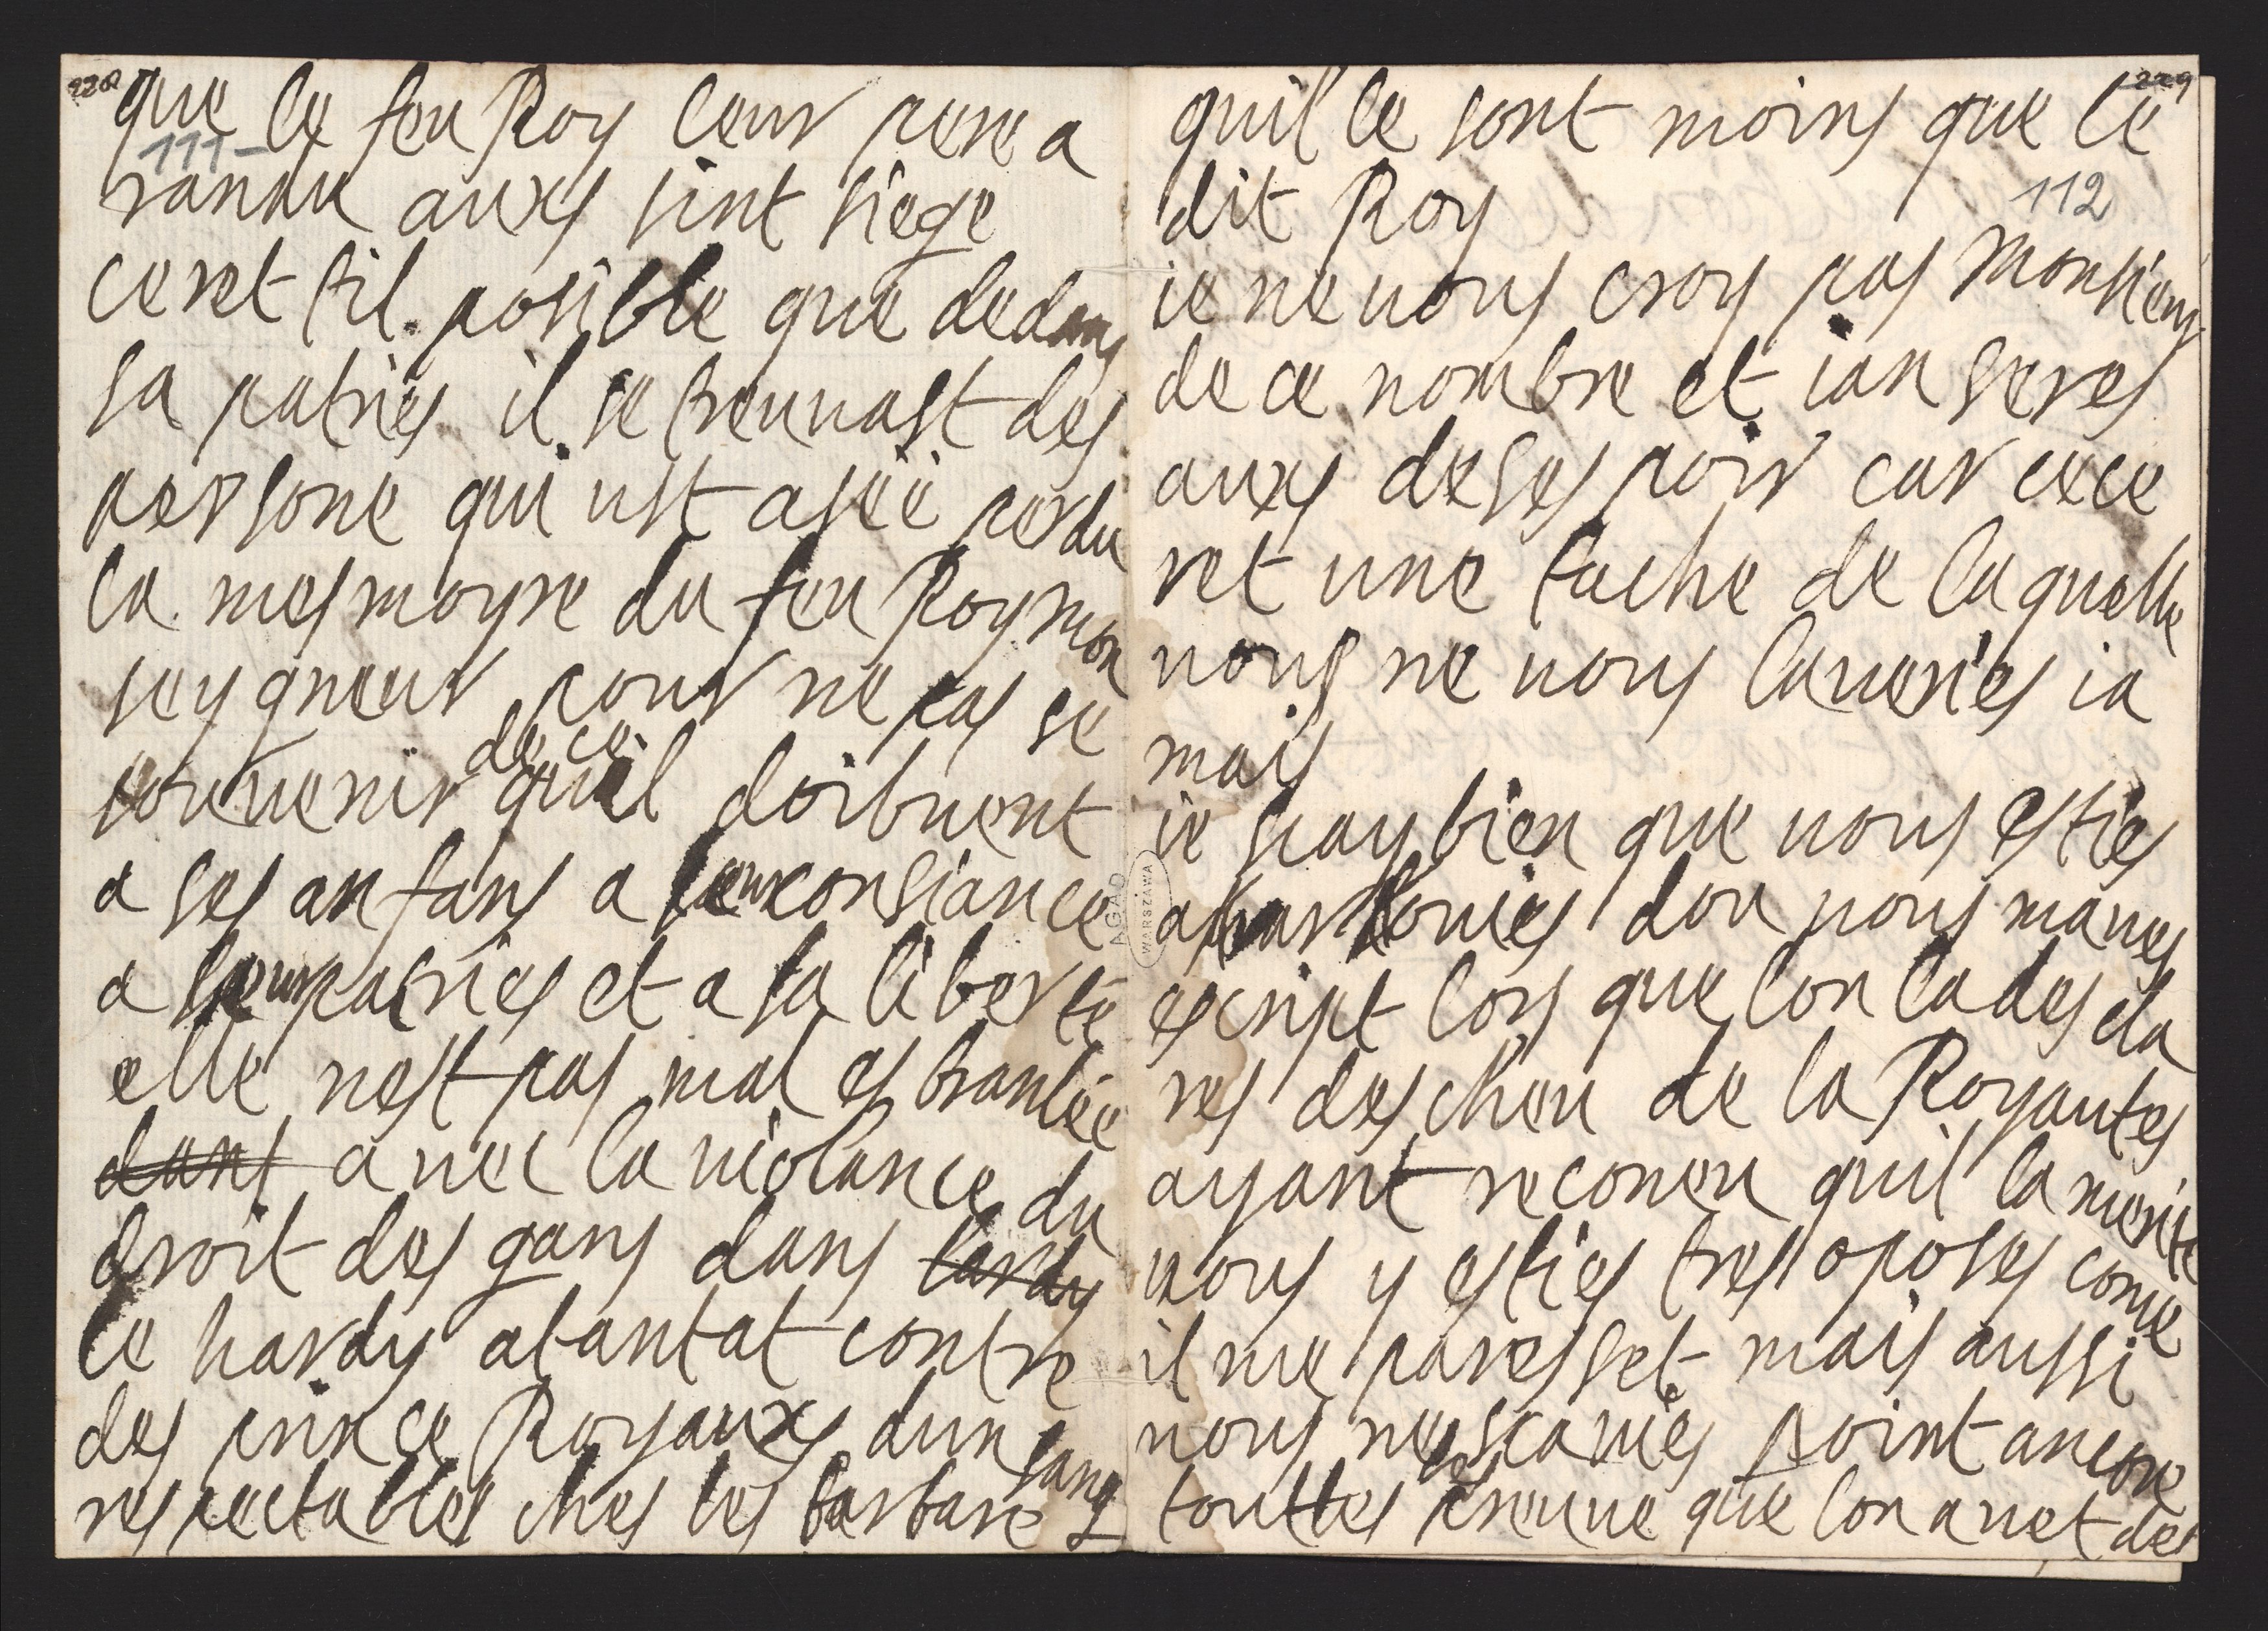 228
111-
que le feu Roy leur pere a
randu auxs sint siege
ceret til posible que dedans
sa patries il se treuuast des
persone qui ust aseé perdu
la mesmoyre du feu Roy mon
seygneur pour ne pas se
souuenir de ce quil doibuent
a ses anfans a leur consiance
a leur patries et a sa liberté
elle nest pas mal esbranlée
dans auec la violance du
droit des gans dans lardy
le hardy atantat contre
des prince Royauxs dun sang
respectables ches les barbare &
229
quil le sont moins que le
dit Roy
112
ie ne uous croy pas Monsieur
de ce nombre et ian seres
auxs desespoir car cece
ret une tache de laquelle
uous ne uous laueries ia
mais
ie scay bien que uous esties
a dou uous maues
escript lors que lon la des cla
res descheu de la Royautes
ayant reconeu quil la merite
uous y esties tres oposes come
il me paresset mais aussi
uous ne scauies point ancore
touttes les preuue que lon auet des
AGAD
WARSZAWA